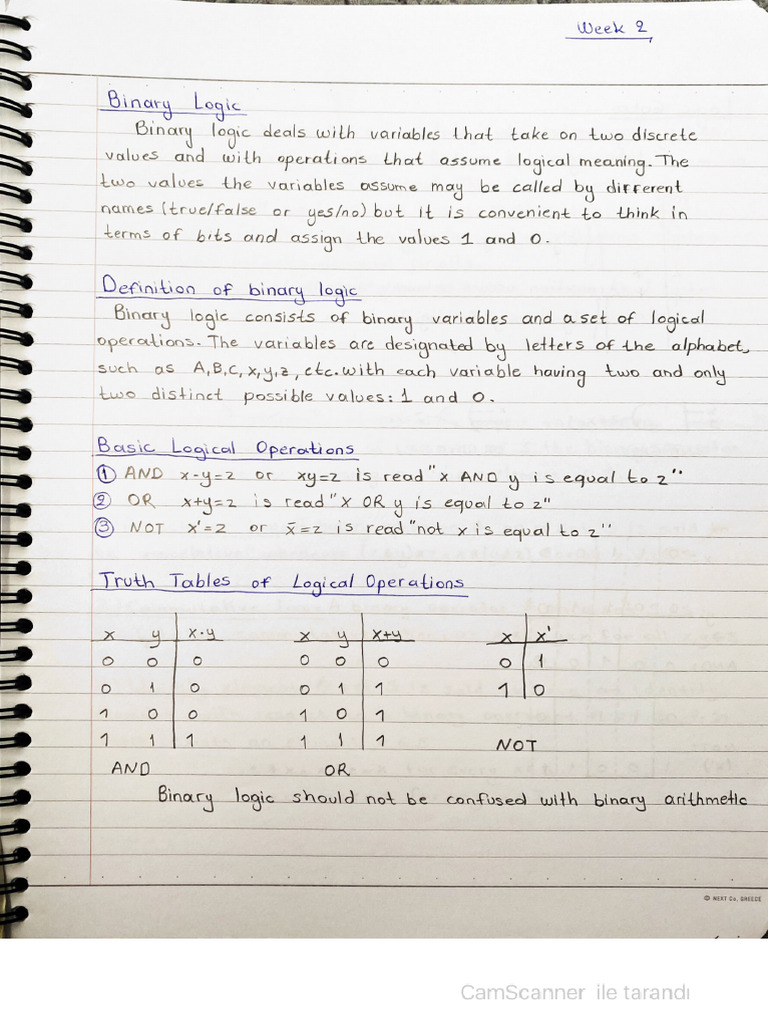 Week 2
Binary Logic
Binary logic deals with variables that take on two discrete
values and with operations that assume logical meaning. The
two values the variables assume may be called by different
names (true/false or yes/no) but it is convenient to think in
terms of bits and assign the values 1 and 0.
Definition of binary logic
Binary logic consists of binary variables and a set of logical
operations. The variables are designated by letters of the alphabet,
such as A,B,C,x,y,z, etc. with each variable having two and only
two distinct possible values: 1 and 0.
Basic Logical Operations
① AND x·y=z or xy=z is read "x AND y is equal to z"
② OR x+y=z is read "x OR y is equal to z"
③ NOT x'=z or x̄=z is read "not x is equal to z"
Truth Tables of Logical Operations
x y x·y x y x+y x x'
0 0 0 0 0 0 0 1
0 1 0 0 1 1 1 0
1 0 0 1 0 1
1 1 1 1 1 1 NOT
AND OR
Binary logic should not be confused with binary arithmetic
© NEXT Co, GREECE
CamScanner ile tarandı